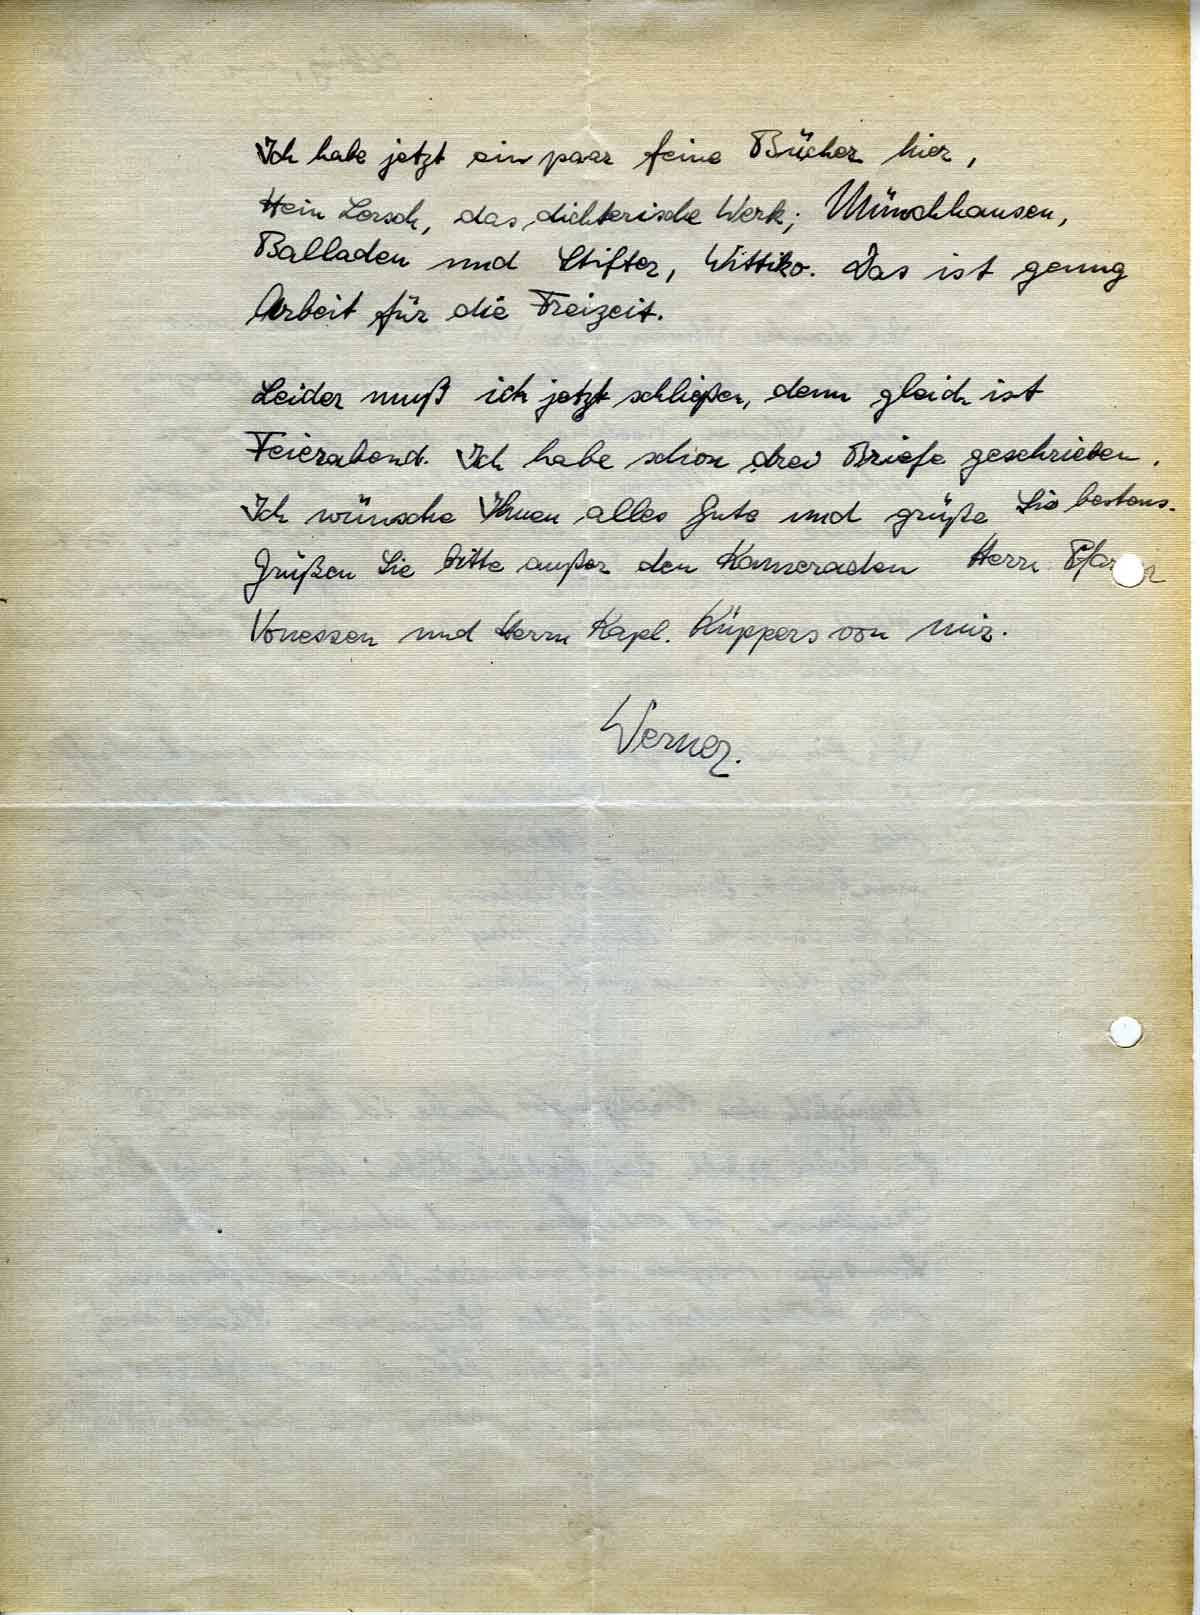 Ich habe jetzt ein paar feine Bücher hier,
Hein Lersch, das dichterische Werk; Münchhausen,
Balladen und Stifter, Wittiko. Das ist genug
Arbeit für die Freizeit.
Leider muß ich jetzt schließen, denn gleich ist
Feierabend. Ich habe schon drei Briefe geschrieben.
Ich wünsche Ihnen alles Gute und grüße Sie bestens.
Grüßen Sie bitte außer den Kameraden Herrn
Vonessen und Herrn Kapl. Küppers von mir.
Werner.